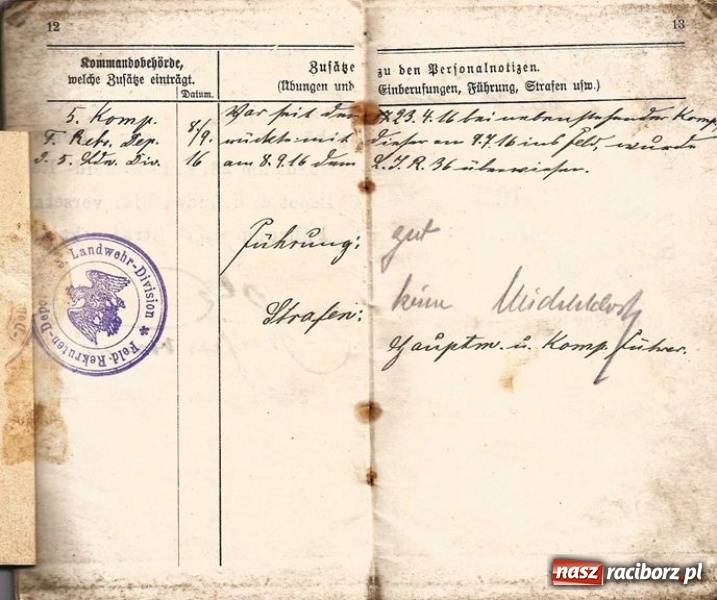 12
13
Kommandobehörde,
welche Zusätze einträgt.
Datum.
Zusätze zu den Personalnotizen.
(Übungen und Einberufungen, Führung, Strafen usw.)
5. Komp.
F. Rekr. Dep.
D. 5. Ldw. Div.
8/9.
16
War seit dem 23.4.16 bei nebenstehender Komp.
rückte mit dieser am 9.7.16 ins Feld, wurde
am 8.9.16 dem L.I.R. 36 überwiesen.
Führung: gut
Strafen: keine
Hauptm. u. Komp. Führer.
Landwehr-Division * Feld-Rekruten-Depot
nasz raciborz.pl